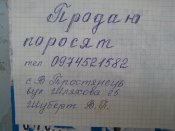 Продаю
поросят
тел 0974521582
с. В Тростянець
вул Шляхова 26
Шуберт В. П.